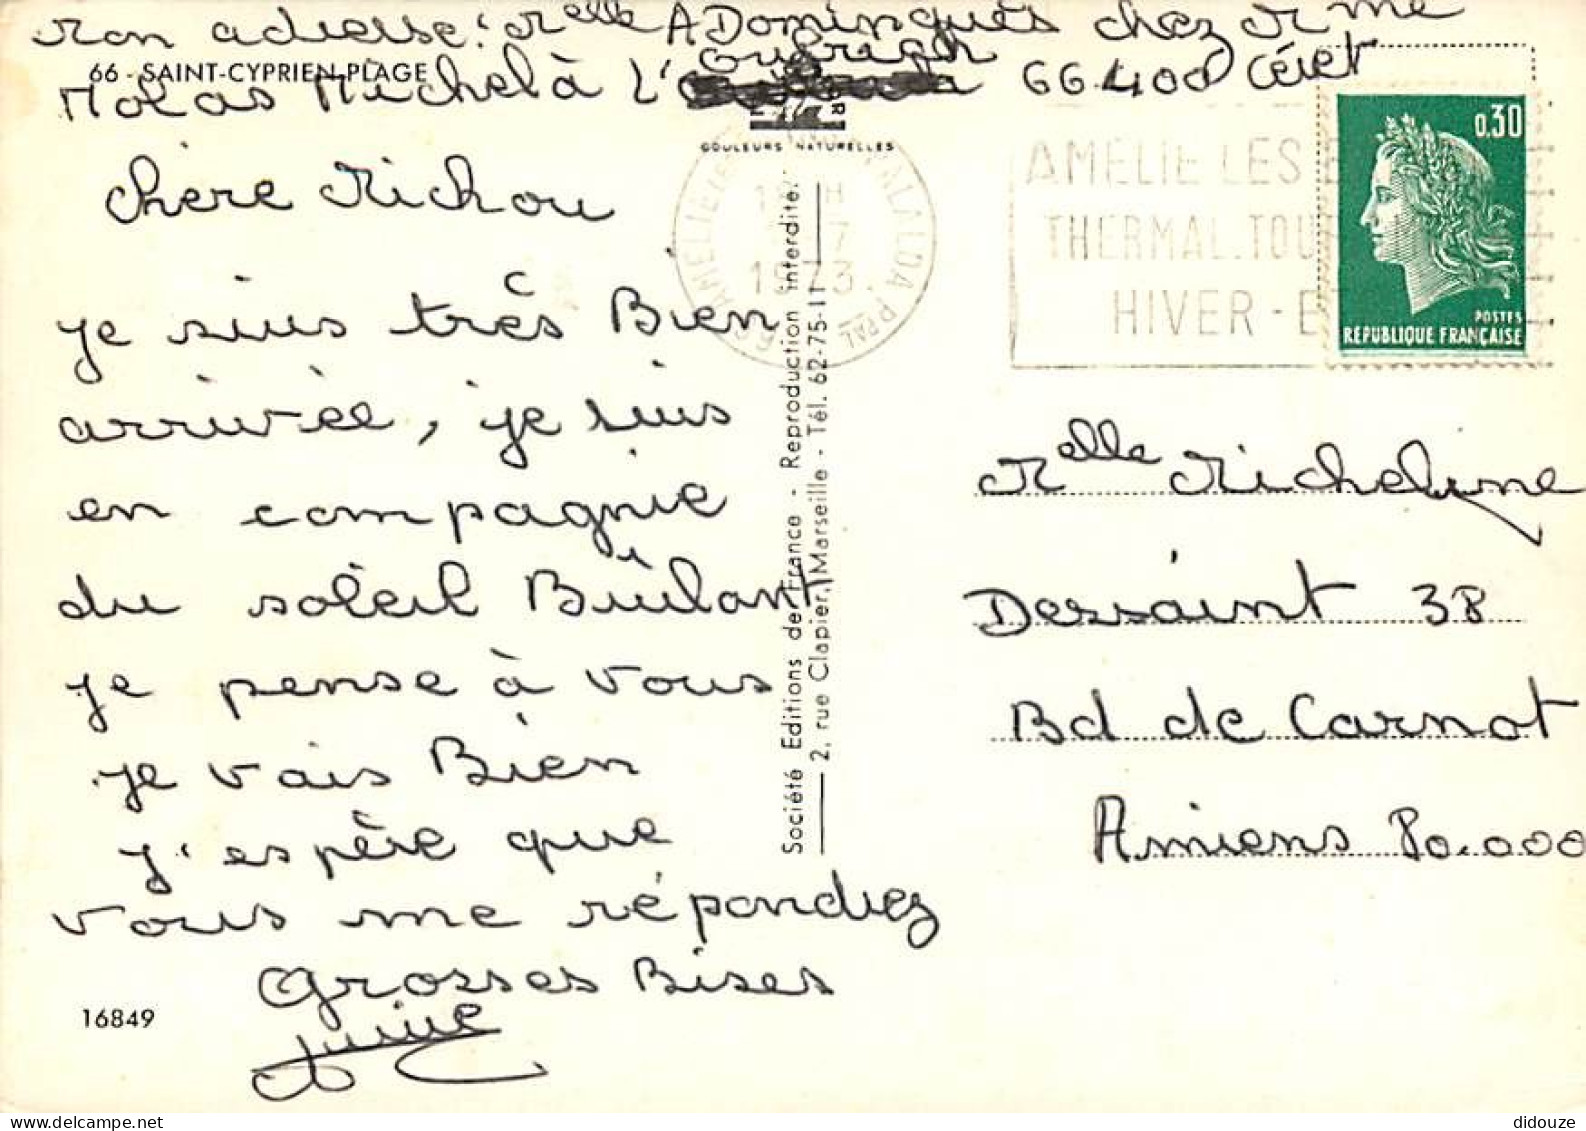 Mon adresse: Melle A Domingues chez Mme
66 - SAINT-CYPRIEN-PLAGE
Molas Michel à L' 66400 Céret
COULEURS NATURELLES
Chère Michou
je suis très Bien
arrivée, je suis
en compagnie
du soleil Brûlant
je pense à vous
je vais Bien
j'espère que
vous me répondrez
Grosses Bises
16849
Société Editions de France - Reproduction interdite.
2, rue Clapier, Marseille - Tél. 62-75-11
1973
AMELIE LES
THERMAL.TOU
HIVER - E
0,30
POSTES
REPUBLIQUE FRANÇAISE
Melle Micheline
Dessaint 38
Bd de Carnot
Amiens 80.000
didouze